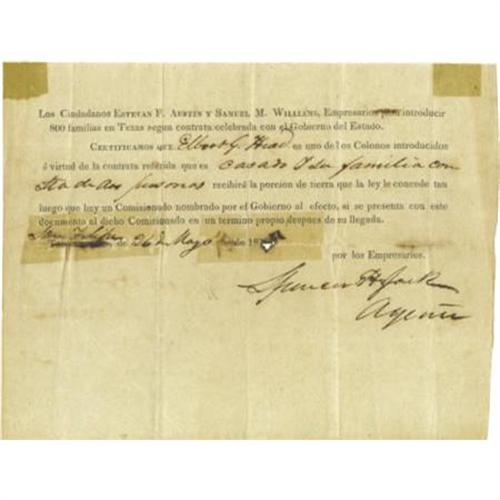 Los Ciudadanos Estevan F. Austin y Samuel M. Williams, Empresarios para introducir
800 familias en Texas segun contrata celebrada con el Gobierno del Estado.
Certificamos que Elbert G. Head es uno de los Colonos introducidos
á virtud de la contrata referida que es casado I su familia con
sta de dos personas recibirá la porcion de tierra que la ley le concede tan
luego que hay un Comisionado nombrado por el Gobierno al efecto, si se presenta con este
documento al dicho Comisionado en un termino propio despues de su llegada.
San Felipe de 26 de Mayo de 18
por los Empresarios.
Spencer H Jack
Agente